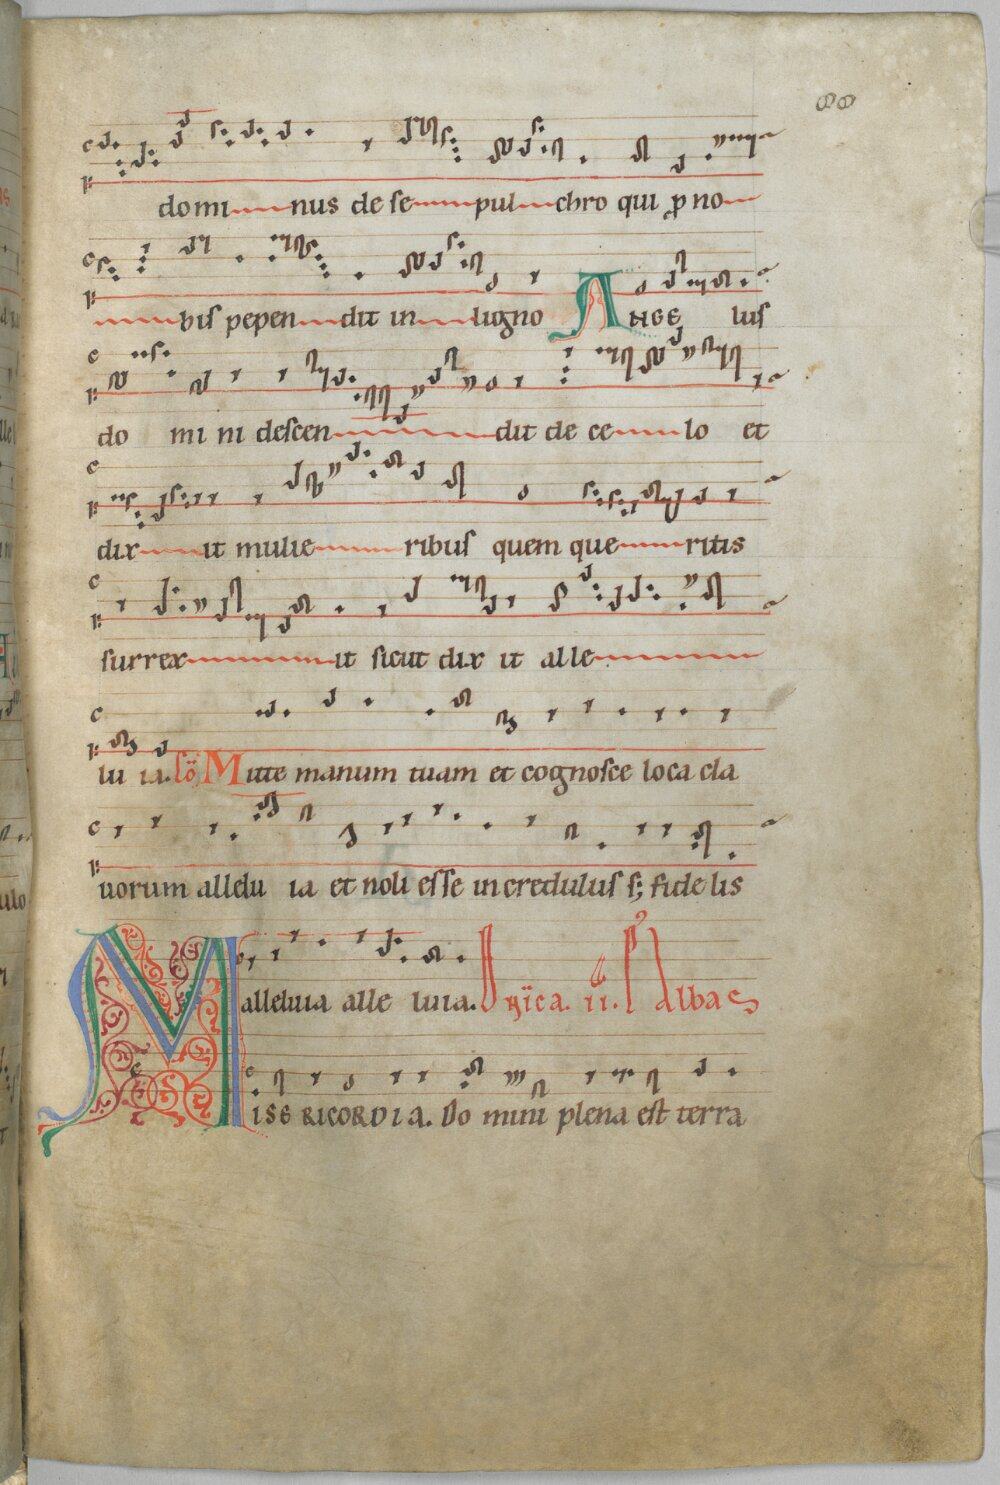 88
domi nus de se pul chro qui ꝓ no
bis pepen dit in ligno Angelus
do mi ni descen dit de ce lo et
dix it mulie ribus quem que ritis
surrex it sicut dix it alle
lu ia. Cō Mitte manum tuam et cognosce loca cla
uorum allelu ia et noli esse incredulus s; fidelis
alleluia alle luia. Dnica. ii. P Albas
MISERICORDIA. Do mini plena est terra